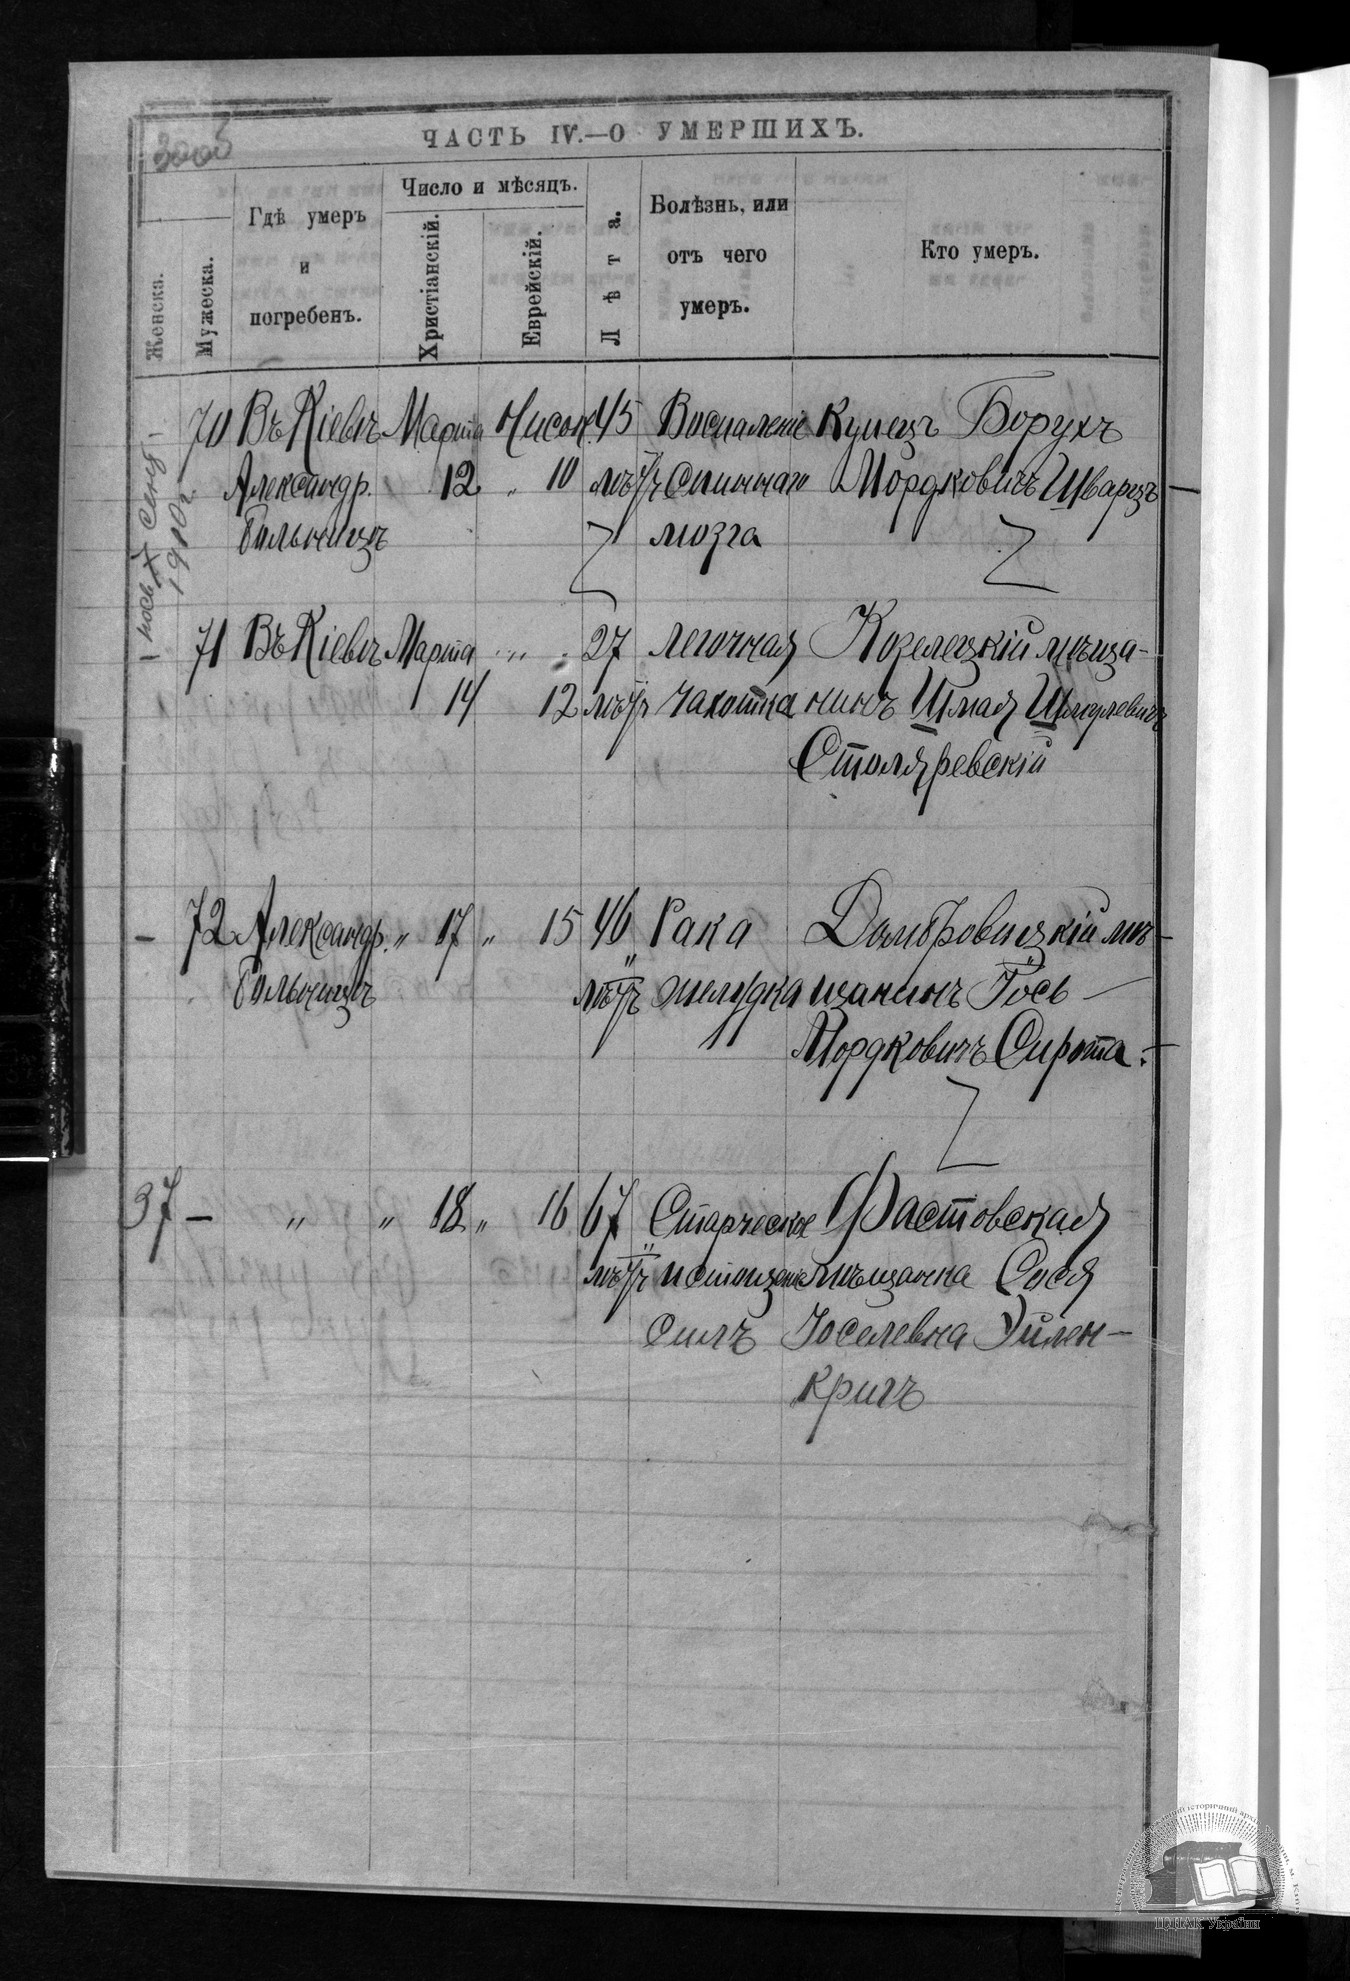 ЧАСТЬ IV.—О УМЕРШИХЪ.
Женска.
Мужеска.
Гдѣ умеръ
и
погребенъ.
Число и мѣсяцъ.
Христіанскій.
Еврейскій.
Лѣта.
Болѣзнь, или
отъ чего
умеръ.
Кто умеръ.
1910 г.
70 Въ Кіевѣ Марта Нисонъ 45 Воспаленіе Купецъ Борухъ
Александр. 12 „ 10 лѣтъ спиннаго Мордковичъ Шварцъ —
больницѣ мозга
— 71 Въ Кіевѣ Марта „ 27 легочная Козелецкій мѣща-
14 12 лѣтъ чахотка нинъ Шмая Шмулевичъ
Столяревскій
— 72 Александр. „ 17 „ 15 46 Рака Домбровицкій мѣ-
больницѣ лѣтъ желудка щанинъ Іось —
Мордковичъ Сирота.
37 — „ „ 18 „ 16 67 Старческое Фастовская
лѣтъ истощеніе мѣщанка Сося
силъ Іоселевна Эйлен-
кригъ
ЦДІАК України